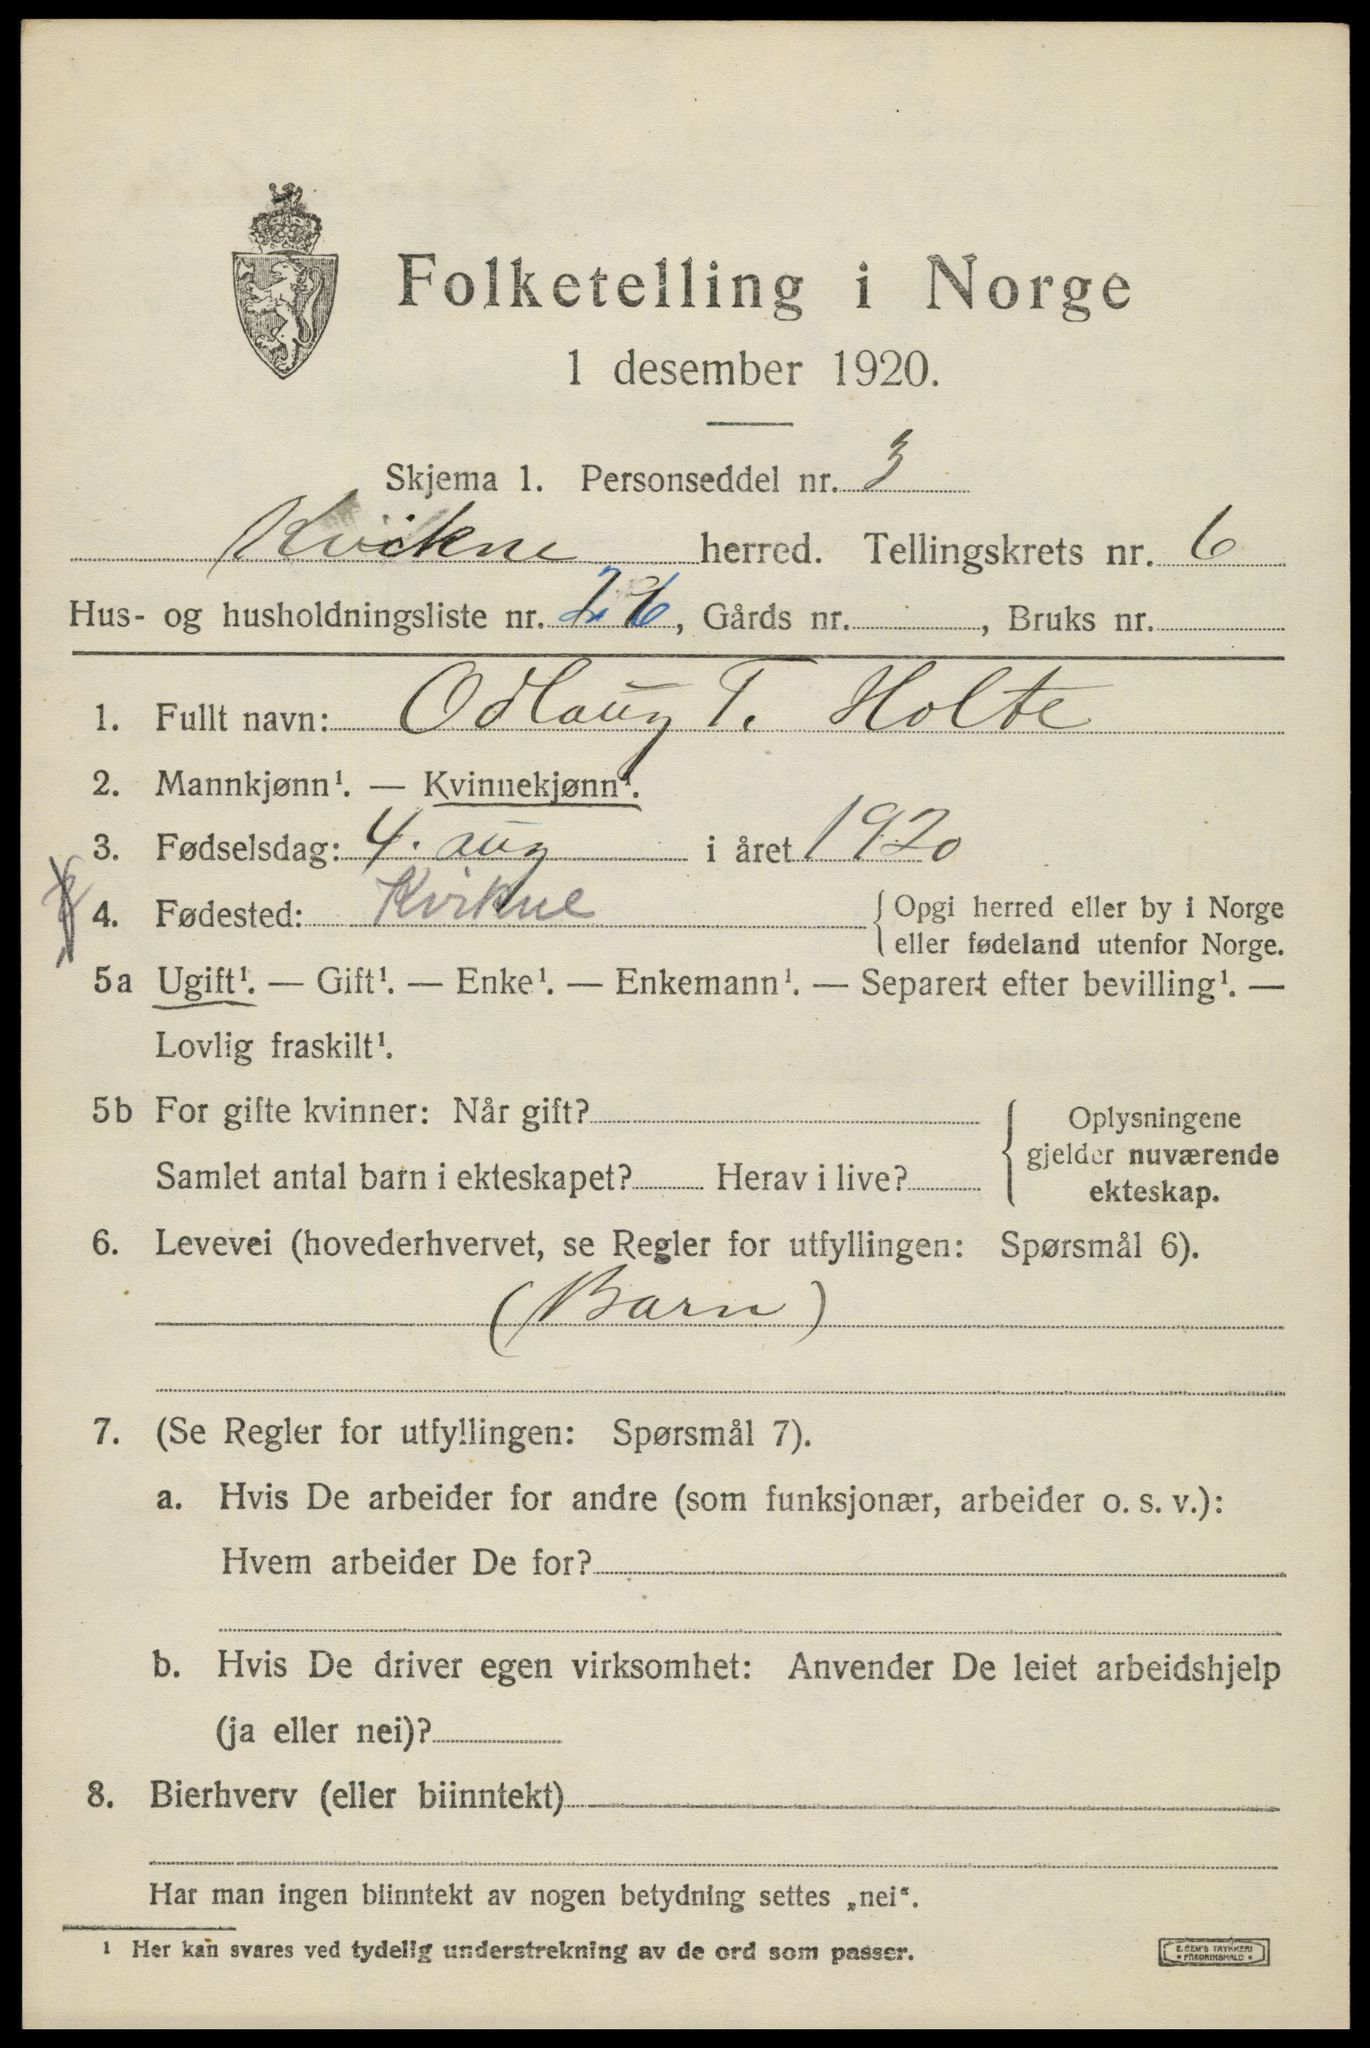 Folketelling i Norge
1 desember 1920.
Skjema 1. Personseddel nr. 3
Kvikne herred. Tellingskrets nr. 6
Hus- og husholdningsliste nr. 26, Gårds nr. , Bruks nr.
1. Fullt navn: Odlaug T. Holte
2. Mannkjønn¹. — Kvinnekjønn¹.
3. Fødselsdag: 4. aug i året 1920
4. Fødested: Kvikne {Opgi herred eller by i Norge
eller fødeland utenfor Norge.
5a Ugift¹. — Gift¹. — Enke¹. — Enkemann¹. — Separert efter bevilling¹. —
Lovlig fraskilt¹.
5b For gifte kvinner: Når gift? Oplysningene
gjelder nuværende
Samlet antal barn i ekteskapet? Herav i live? ekteskap.
6. Levevei (hovederhvervet, se Regler for utfyllingen: Spørsmål 6).
(Barn)
7. (Se Regler for utfyllingen: Spørsmål 7).
a. Hvis De arbeider for andre (som funksjonær, arbeider o. s. v.):
Hvem arbeider De for?
b. Hvis De driver egen virksomhet: Anvender De leiet arbeidshjelp
(ja eller nei)?
8. Bierhverv (eller biinntekt)
Har man ingen biinntekt av nogen betydning settes „nei“.
¹ Her kan svares ved tydelig understrekning av de ord som passer.
E. SEM'S TRYKKERI
FREDRIKSHALD